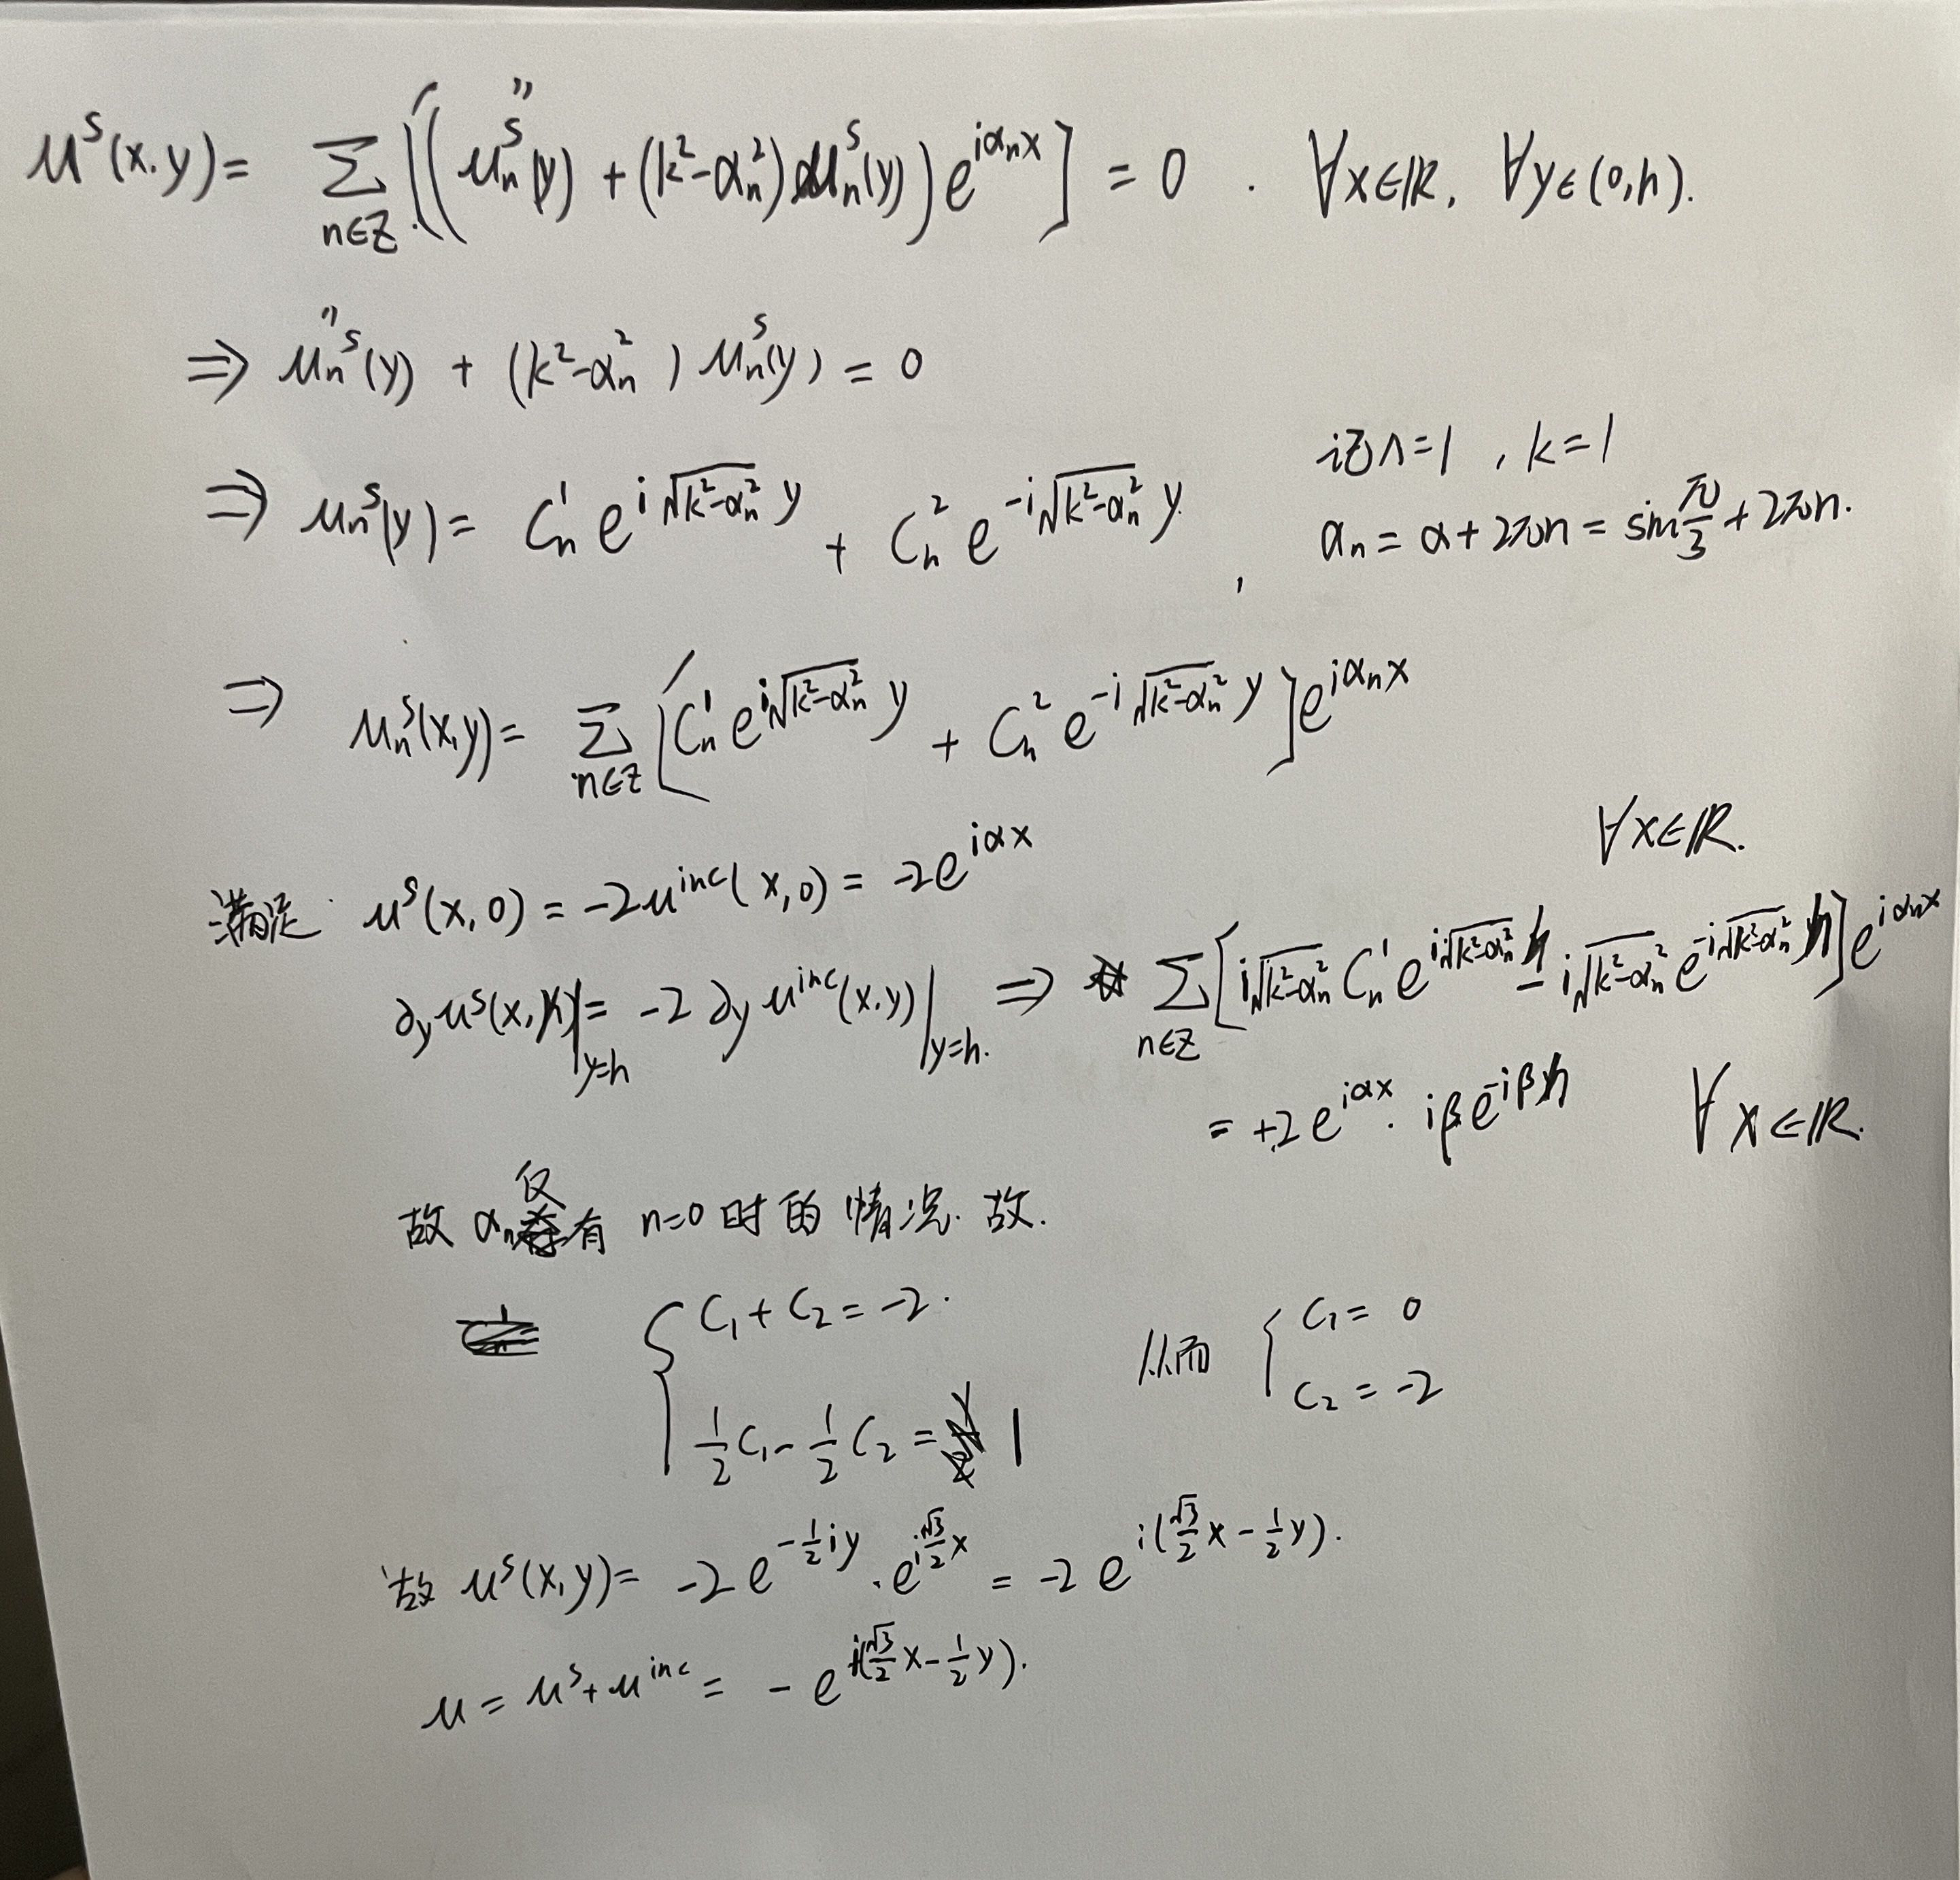 u^s(x,y) = Σ_{n∈Z} [(u_n^s''(y) + (k²-α_n²) u_n^s(y)) e^{iα_n x}] = 0 . ∀x∈ℝ, ∀y∈(0,h).
⇒ u_n^s''(y) + (k²-α_n²) u_n^s(y) = 0
记Λ=1 , k=1
⇒ u_n^s(y) = C_n^1 e^{i√(k²-α_n²) y} + C_n^2 e^{-i√(k²-α_n²) y} ,
α_n = α+2πn = sin π/3 + 2πn.
⇒ u_n^s(x,y) = Σ_{n∈Z} [C_n^1 e^{i√(k²-α_n²) y} + C_n^2 e^{-i√(k²-α_n²) y}] e^{iα_n x}
∀x∈ℝ.
满足 u^s(x,0) = -2u^{inc}(x,0) = -2e^{iαx}
∂_y u^s(x,y)|_{y=h} = -2 ∂_y u^{inc}(x,y)|_{y=h}. ⇒ Σ_{n∈Z} [i√(k²-α_n²) C_n^1 e^{i√(k²-α_n²) h} - i√(k²-α_n²) e^{-i√(k²-α_n²) h}] e^{iα_n x}
= +2e^{iαx}· iβe^{-iβh} ∀x∈ℝ.
故 α_n 仅有 n=0 时的情况. 故.
{ C_1 + C_2 = -2.
1/2 C_1 - 1/2 C_2 = 1
从而 { C_1 = 0
C_2 = -2
故 u^s(x,y) = -2e^{-1/2 iy}·e^{i√3/2 x} = -2e^{i(√3/2 x - 1/2 y)}.
u = u^s + u^{inc} = -e^{i(√3/2 x - 1/2 y)}.